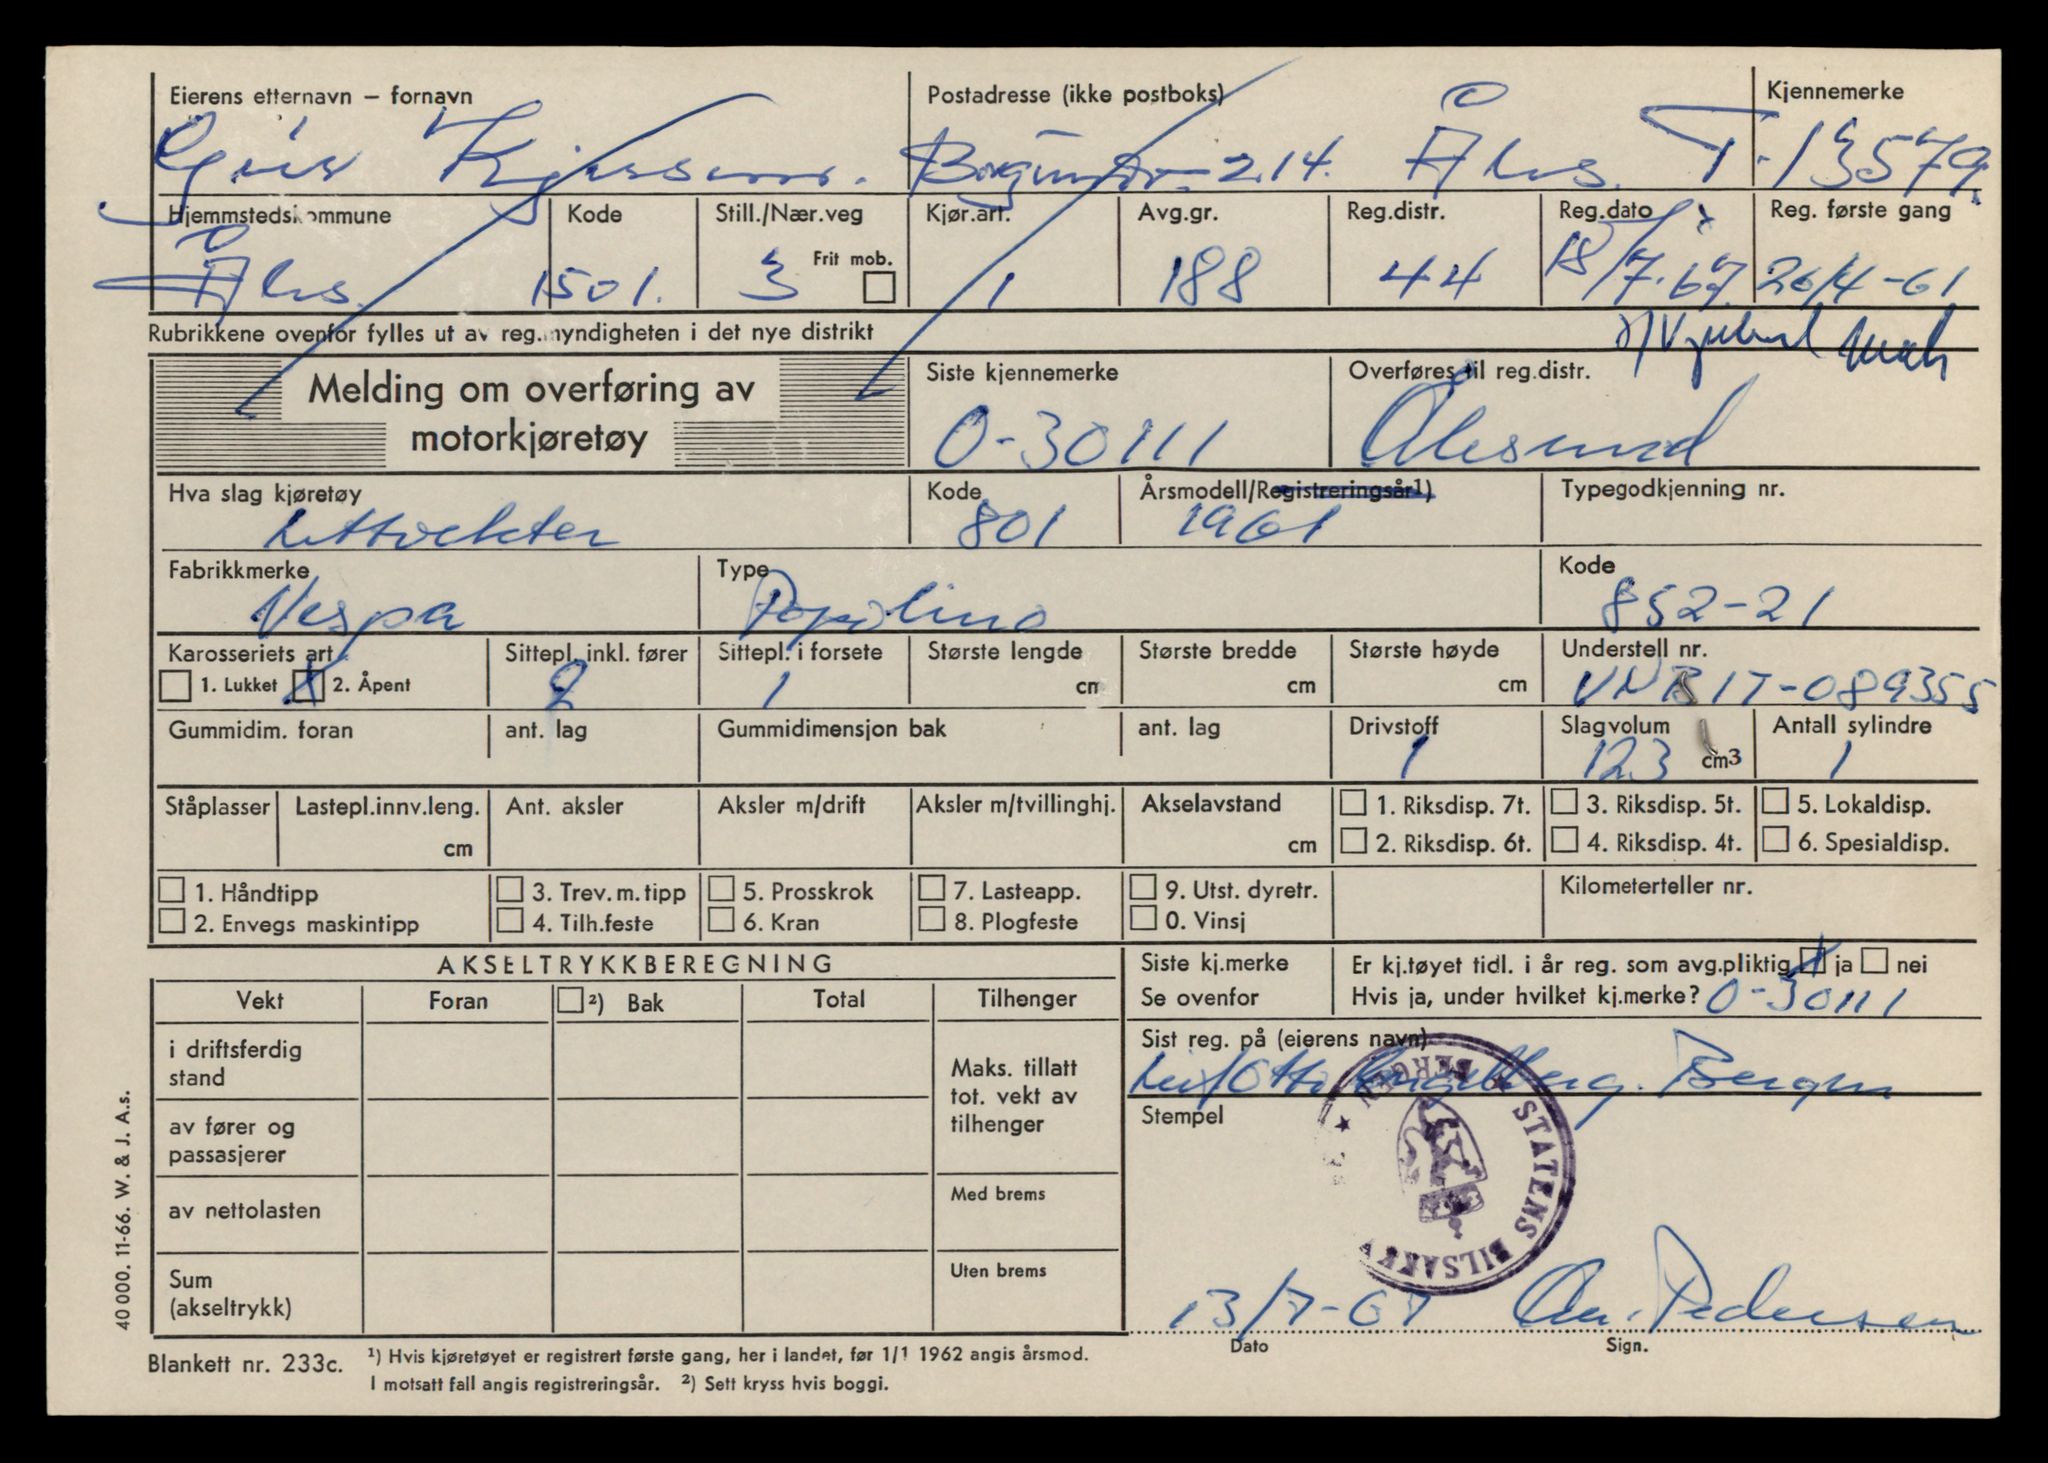 Eierens etternavn – fornavn Postadresse (ikke postboks) Kjennemerke
214. Åles. T-13579
Hjemmstedskommune Kode Still./Nær.veg Kjør.art. Avg.gr. Reg.distr. Reg.dato Reg. første gang
Frit mob.
Åles. 1501. 3 1 188 44 18/7-67 26/4-61
Rubrikkene ovenfor fylles ut av reg.myndigheten i det nye distrikt
Melding om overføring av
motorkjøretøy
Siste kjennemerke Overføres til reg.distr.
O-30111 Ålesund
Hva slag kjøretøy Kode Årsmodell/Registreringsår¹) Typegodkjenning nr.
Lettvekter 801 1961
Fabrikkmerke Type Kode
Vespa Popolino 852-21
Karosseriets art Sittepl. inkl. fører Sittepl. i forsete Største lengde Største bredde Største høyde Understell nr.
1. Lukket X 2. Åpent 2 1 cm cm cm VNB1T-089355
Gummidim. foran ant. lag Gummidimensjon bak ant. lag Drivstoff Slagvolum Antall sylindre
1 123 cm³ 1
Ståplasser Lastepl.innv.leng. Ant. aksler Aksler m/drift Aksler m/tvillinghj. Akselavstand 1. Riksdisp. 7t. 3. Riksdisp. 5t. 5. Lokaldisp.
cm cm 2. Riksdisp. 6t. 4. Riksdisp. 4t. 6. Spesialdisp.
1. Håndtipp 3. Trev. m. tipp 5. Prosskrok 7. Lasteapp. 9. Utst. dyretr. Kilometerteller nr.
2. Envegs maskintipp 4. Tilh.feste 6. Kran 8. Plogfeste 0. Vinsj
AKSELTRYKKBEREGNING
Vekt Foran ²) Bak Total Tilhenger
i driftsferdig
stand
av fører og
passasjerer
av nettolasten
Sum
(akseltrykk)
Maks. tillatt
tot. vekt av
tilhenger
Med brems
Uten brems
Siste kj.merke Er kj.tøyet tidl. i år reg. som avg.pliktig X ja nei
Se ovenfor Hvis ja, under hvilket kj.merke? O-30111
Sist reg. på (eierens navn)
Leif Otto Engelberg. Bergen
Stempel
STATENS BILSAKK BERGEN
13/7-67 Pedersen
Dato Sign.
Blankett nr. 233c. ¹) Hvis kjøretøyet er registrert første gang, her i landet, før 1/1 1962 angis årsmod.
I motsatt fall angis registreringsår. ²) Sett kryss hvis boggi.
40 000. 11-66. W. & J. A.s.